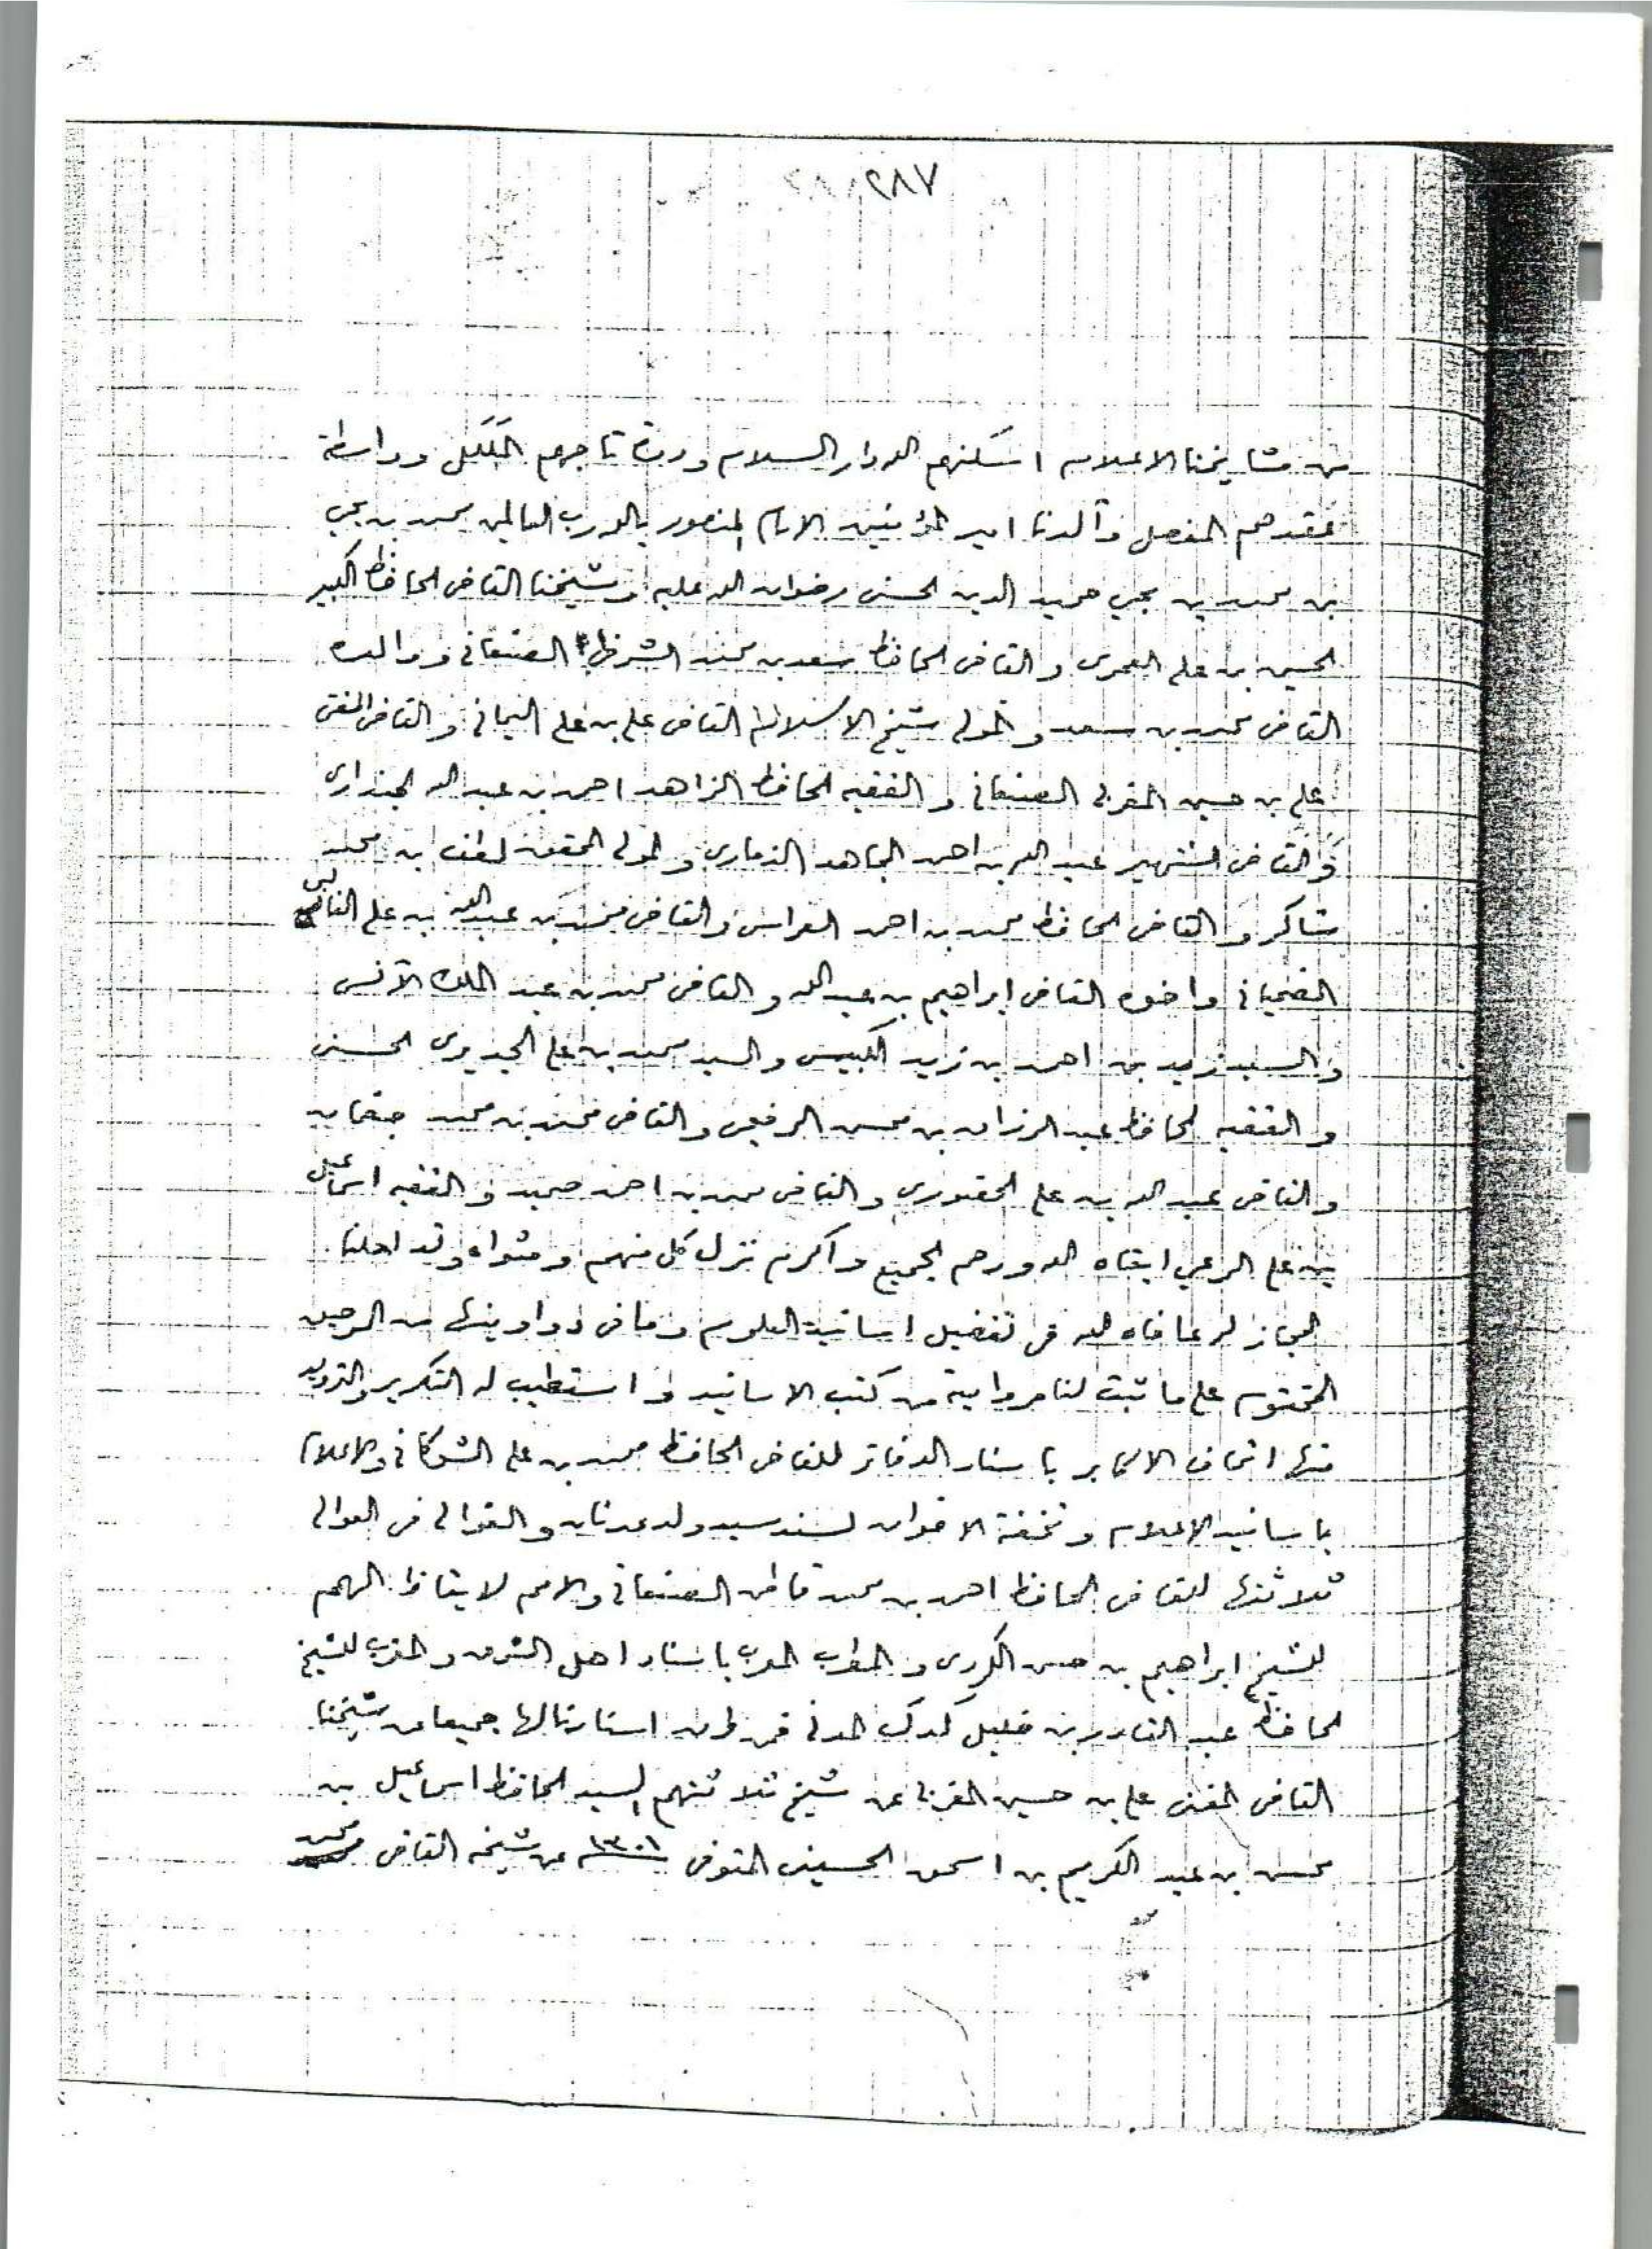 ٢٨٧
من مشايخنا الاعلام اسكنهم الله دار السلام ودرة تاجهم المكلل وواسطة
عقدهم المفصل والدنا امير المؤمنين الامام المنصور بالله رب العالمين محمد بن يحيى
بن محمد بن يحيى حميد الدين الحسني رضوان الله عليه وشيخنا القاضي الحافظ الكبير
الحسين بن علي العمري والقاضي الحافظ سعد بن محمد الشرقي الصنعاني ووالده
القاضي محمد بن سعد والمولى شيخ الاسلام القاضي علي بن علي اليماني والقاضي المفتي
علي بن حسين المغربي الصنعاني والفقيه الحافظ الزاهد احمد بن عبدالله الجنداري
والقاضي الشهير عبدالله بن احمد المجاهد الذماري والمولى المحقق لطف بن محمد
شاكر والقاضي الحافظ محمد بن احمد العراسي والقاضي محمد بن عبدالله بن علي الغالبي
الضحياني واخوه القاضي ابراهيم بن عبدالله والقاضي محمد بن عبد الملك الآنسي
والسيد زيد بن احمد بن زيد الكبسي والسيد محمد بن علي الجديري الحسني
والفقيه الحافظ عبد الرزاق بن محسن الرقيحي والقاضي محمد بن محمد جغمان
والقاضي عبدالله بن علي الحضوري والقاضي محمد بن احمد حميد والفقيه اسماعيل
بن علي الريمي ابقاه الله ورحم الجميع واكرم نزل كل منهم ومثواه وقد احلنا
المجاز له عافاه الله في تفصيل اسانيد العلوم وما في دواوينها من الرحيق
المختوم على ما ثبت لنا روايته من كتب الاسانيد واستطيب له التكرير والترديد
منها اتحاف الاكابر باسناد الدفاتر للقاضي الحافظ محمد بن علي الشوكاني والاعلام
باسانيد الاعلام وتحفة الاخوان لسند سيد ولد عدنان والغوالي في العوالي
ثلاثتها للقاضي الحافظ احمد بن محمد قاطن الصنعاني والامم لايقاظ الهمم
للشيخ ابراهيم بن حسن الكردي والمطرب المعرب باسناد اهل الشرق والمغرب للشيخ
الحافظ عبد القادر بن خليل كدك المدني فمن طرق اسنادنا لها جميعا عن شيخنا
القاضي المفتي علي بن حسين المغربي عن شيخ ثلاثتهم السيد الحافظ اسماعيل بن
محسن بن عبد الكريم بن اسحق الحسيني المتوفي ١٣٠١ عن شيخه القاضي محمد